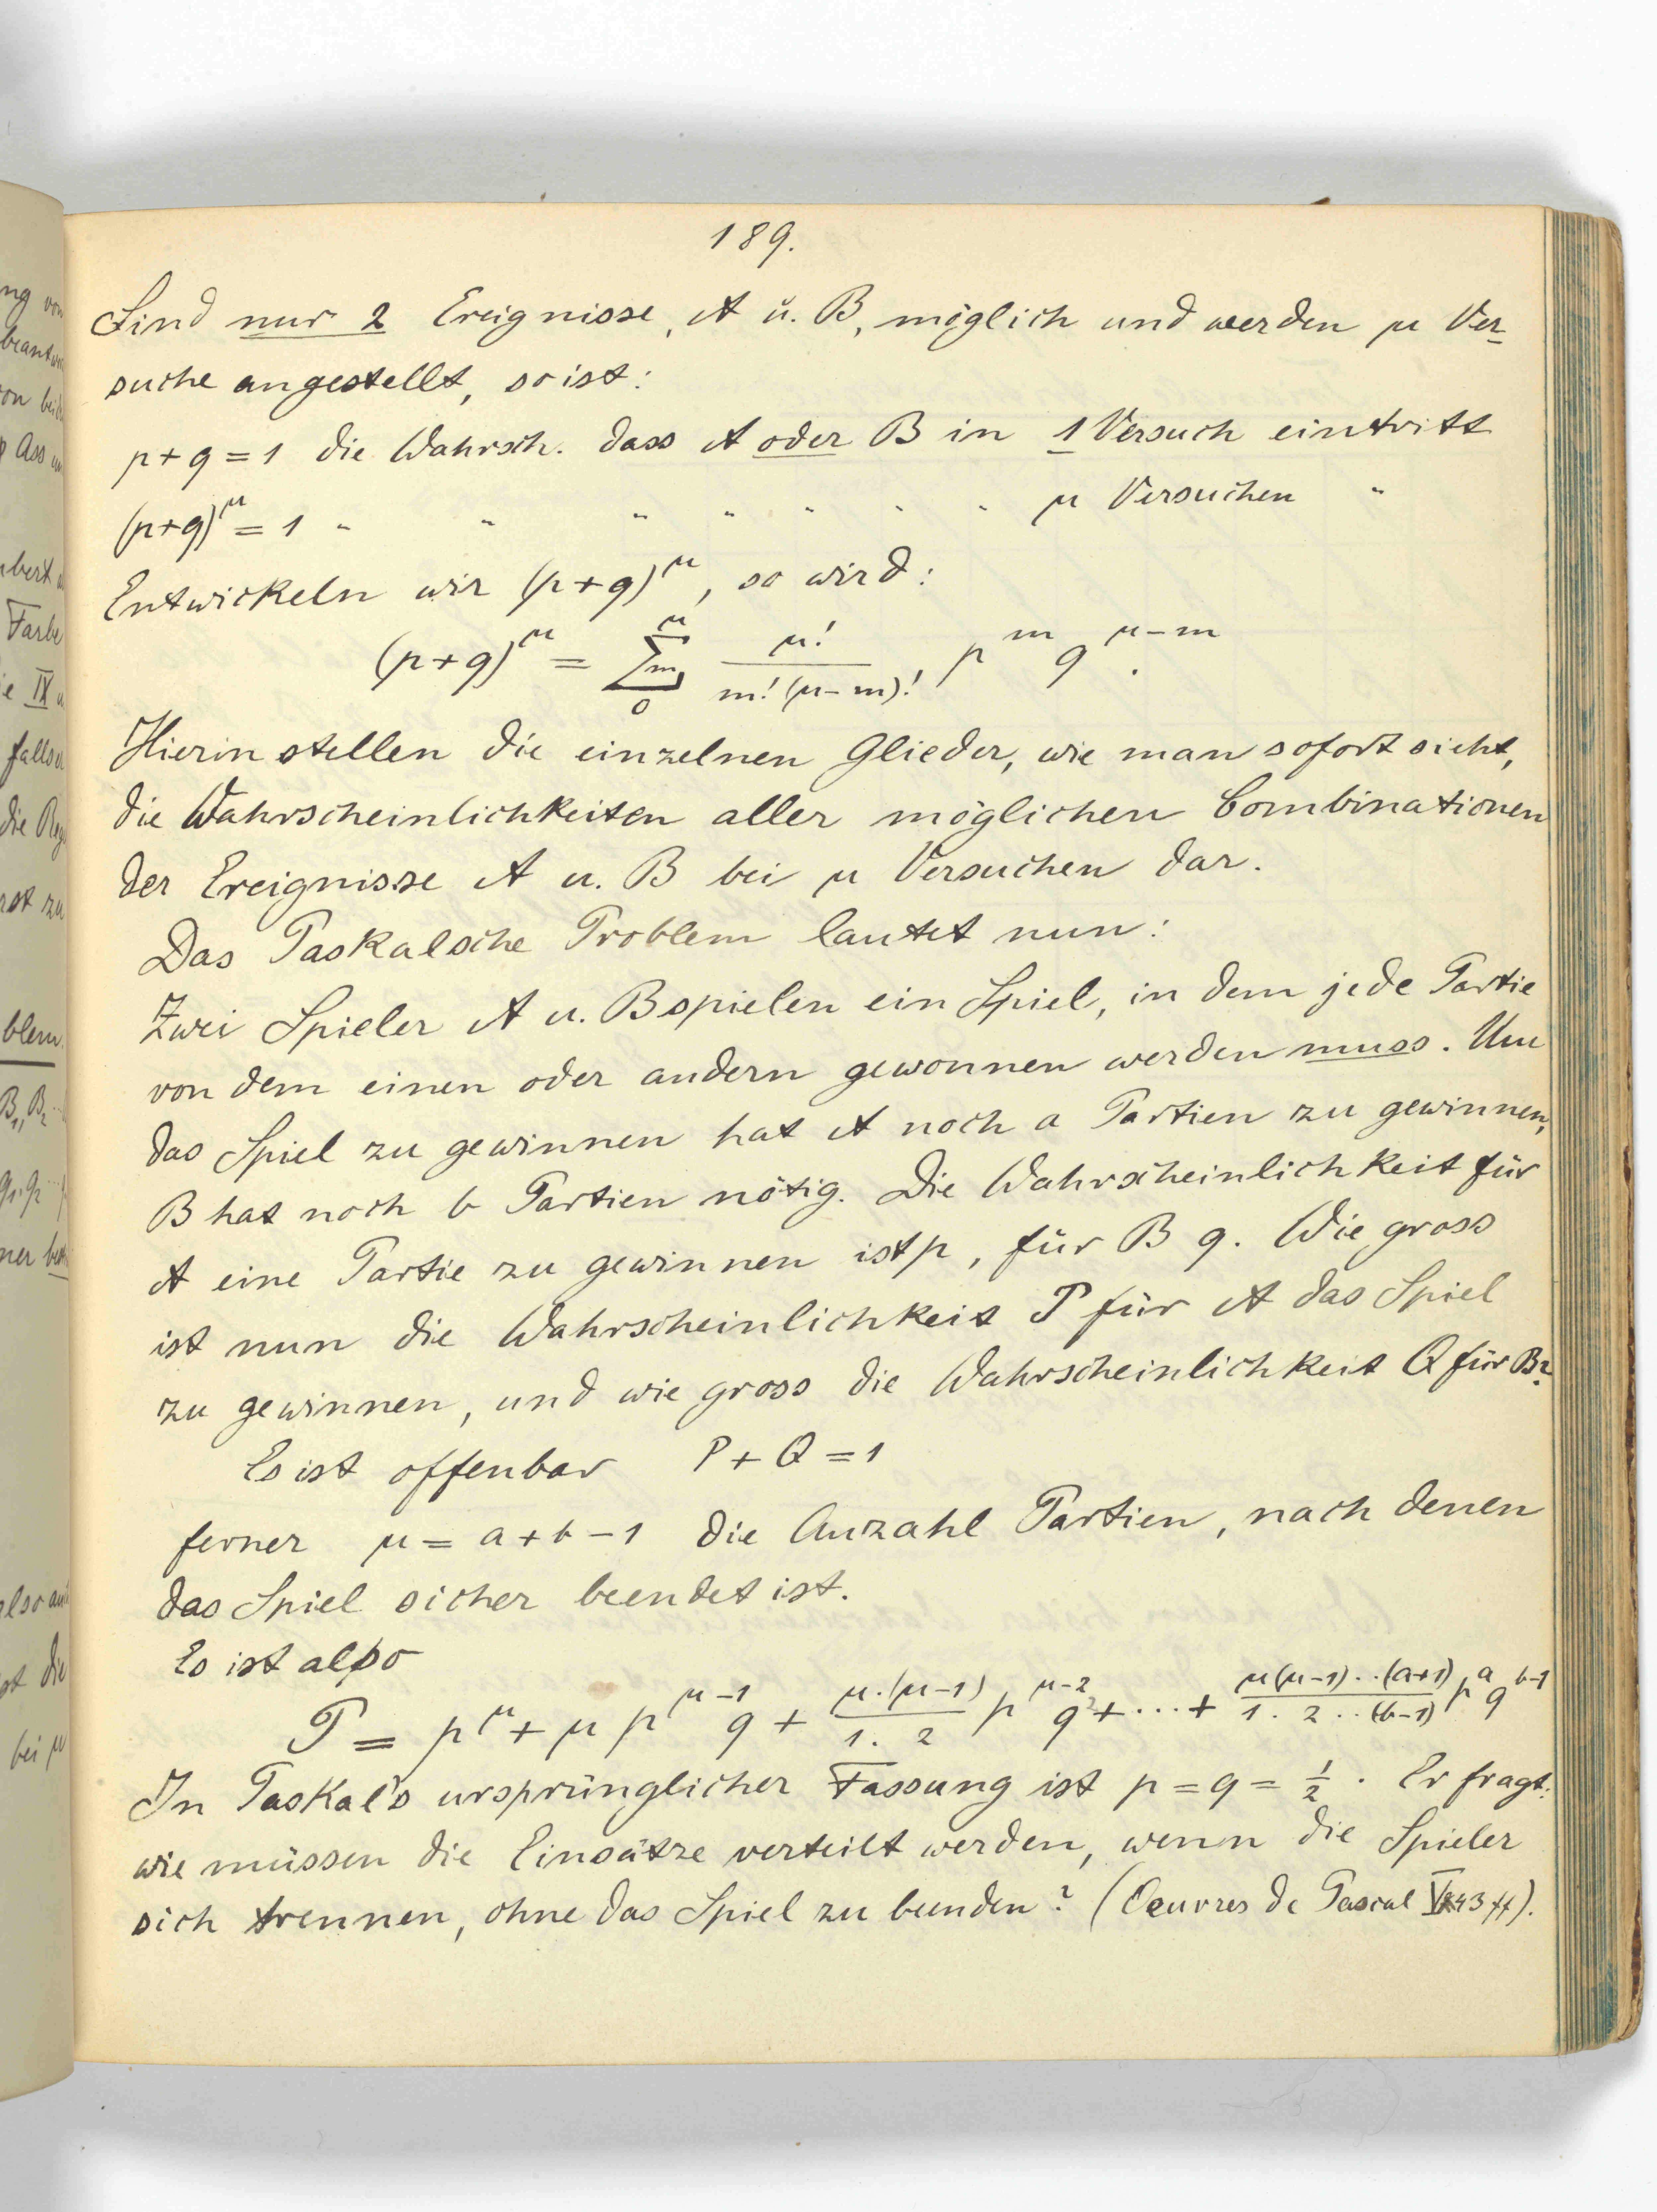 189.
Sind nur 2 Ereignisse, A u. B, möglich und werden μ Ver-
suche angestellt, so ist:
p + q = 1 die Wahrsch. dass A oder B in 1 Versuch eintritt
(p+q)^μ = 1 " " " " " " " μ Versuchen "
Entwickeln wir (p+q)^μ, so wird:
(p+q)^μ = \sum_{0}^{μ}{}_m \frac{μ!}{m!(μ-m)!} p^m q^{μ-m}.
Hierin stellen die einzelnen Glieder, wie man sofort sieht,
die Wahrscheinlichkeiten aller möglichen Combinationen
der Ereignisse A u. B bei μ Versuchen dar.
Das Paskalsche Problem lautet nun:
Zwei Spieler A u. B spielen ein Spiel, in dem jede Partie
von dem einen oder andern gewonnen werden muss. Um
das Spiel zu gewinnen hat A noch a Partien zu gewinnen,
B hat noch b Partien nötig. Die Wahrscheinlichkeit für
A eine Partie zu gewinnen ist p, für B q. Wie gross
ist nun die Wahrscheinlichkeit P für A das Spiel
zu gewinnen, und wie gross die Wahrscheinlichkeit Q für B?
Es ist offenbar P + Q = 1
ferner μ = a + b - 1 die Anzahl Partien, nach denen
das Spiel sicher beendet ist.
Es ist also
P = p^μ + μ p^{μ-1} q + \frac{μ.(μ-1)}{1. 2} p^{μ-2} q^2 + ... + \frac{μ(μ-1)..(a+1)}{1. 2..(b-1)} p^a q^{b-1}
In Paskal's ursprünglicher Fassung ist p = q = \frac{1}{2}. Er fragt:
wie müssen die Einsätze verteilt werden, wenn die Spieler
sich trennen, ohne das Spiel zu beenden? (Oeuvres de Pascal 43 ff).